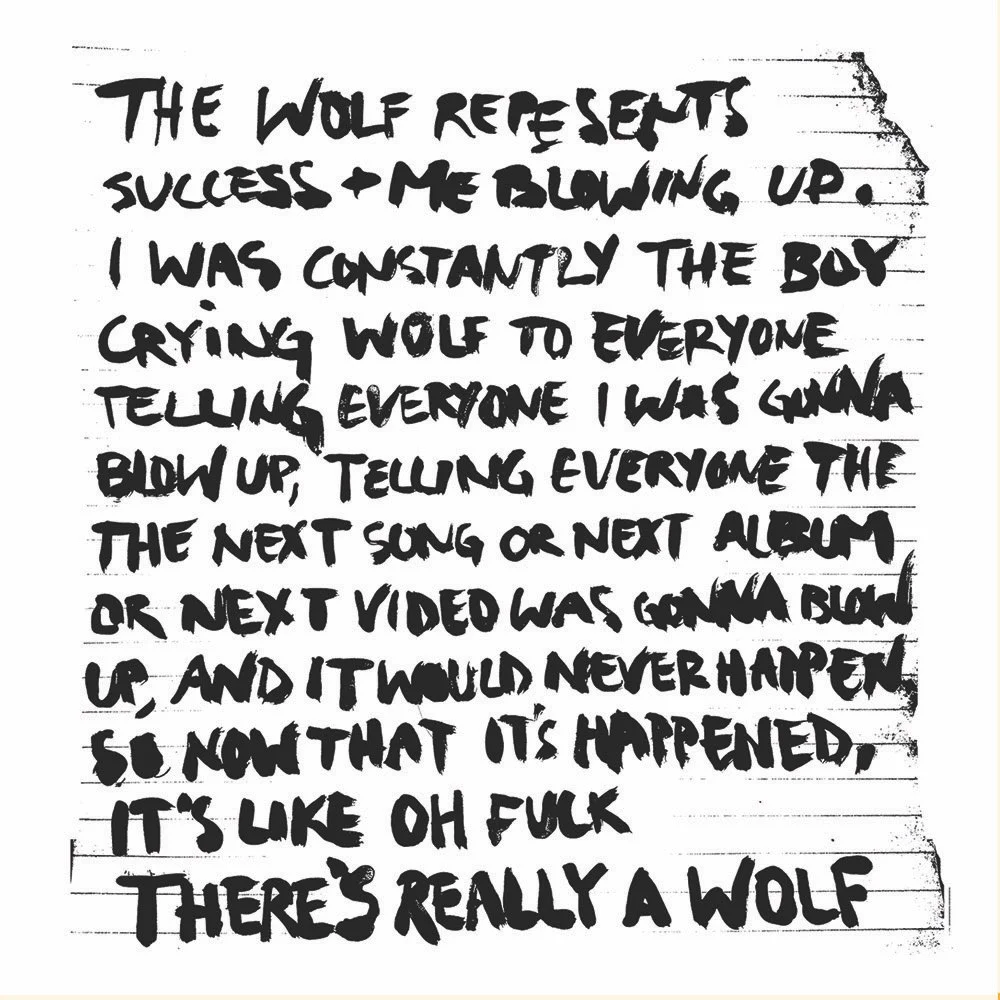 THE WOLF REPESENTS
SUCCESS + ME BLOWING UP.
I WAS CONSTANTLY THE BOY
CRYiNG WOLF TO EVERYONE
TELLING EVERYONE I WAS GONNA
BLOW UP, TELLING EVERYONE THE
THE NEXT SONG OR NEXT ALBUM
OR NEXT VIDEO WAS GONNA BLOW
UP, AND IT WOULD NEVER HAPPEN.
SO NOW THAT IT'S HAPPENED,
IT'S LIKE OH FUCK
THERE'S REALLY A WOLF